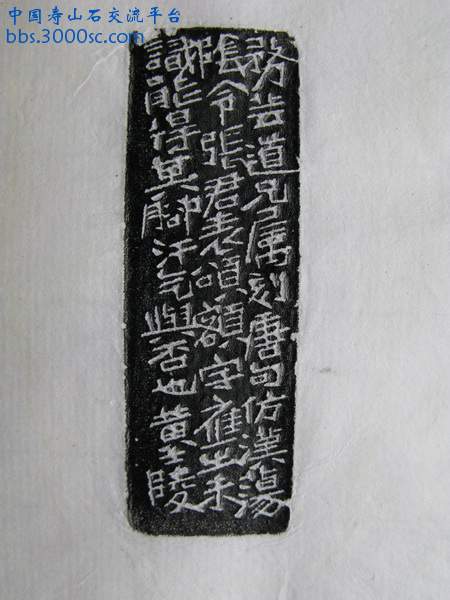 中国寿山石交流平台
bbs.3000sc.com
務道兄屬刻唐句仿漢蕩
陰令張君表頌額字未
識能得其腳汗气與否也黃士陵